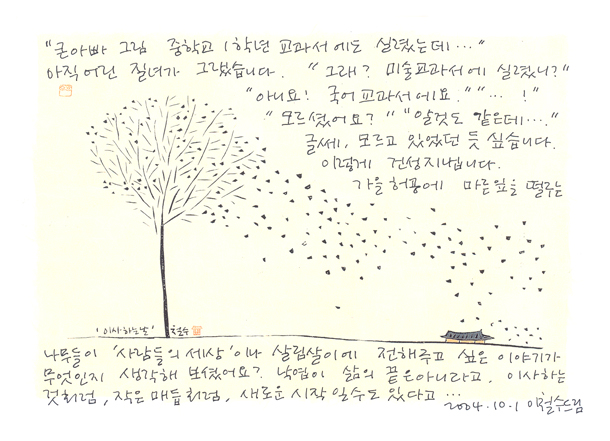 "큰아빠 그림 중학교 1학년 교과서에도 실렸는데…"
아직 어린 질녀가 그랬습니다. "그래? 미술교과서에 실렸니?"
"아니요! 국어교과서에요." "… !"
"모르셨어요?" "알것도 같은데…."
글쎄, 모르고 있었던 듯 싶습니다.
이렇게 건성지냅니다.
가을 허공에 마른잎을 떨구는
'이사하는 날' 철수
나무들이 '사람들의 세상'이나 살림살이에 전해주고 싶은 이야기가
무엇인지 생각해 보셨어요? 낙엽이 삶의 끝은아니라고, 이사하는
것처럼, 작은 매듭처럼, 새로운 시작일수도 있다고 …
2004.10.1 이철수드림